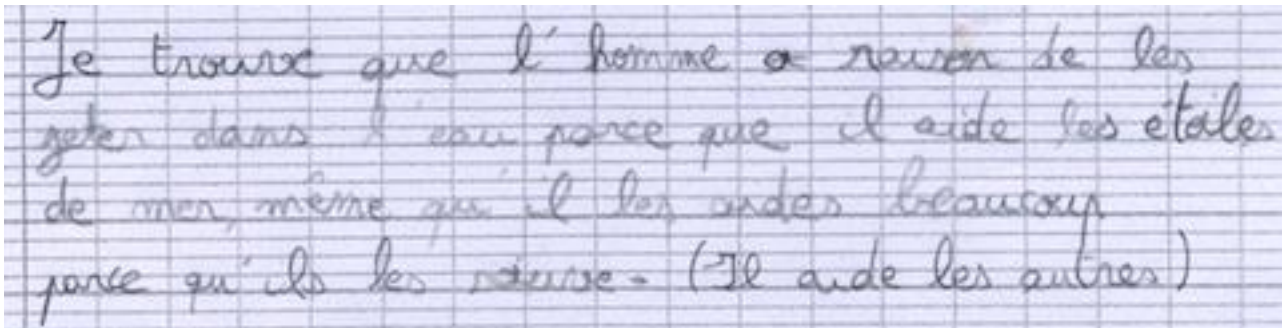 Je trouve que l'homme a raison de les
jeter dans l'eau parce que il aide les étoiles
de mer, même qu'il les aides beaucoup
parce qu'ils les sauve. (Il aide les autres)